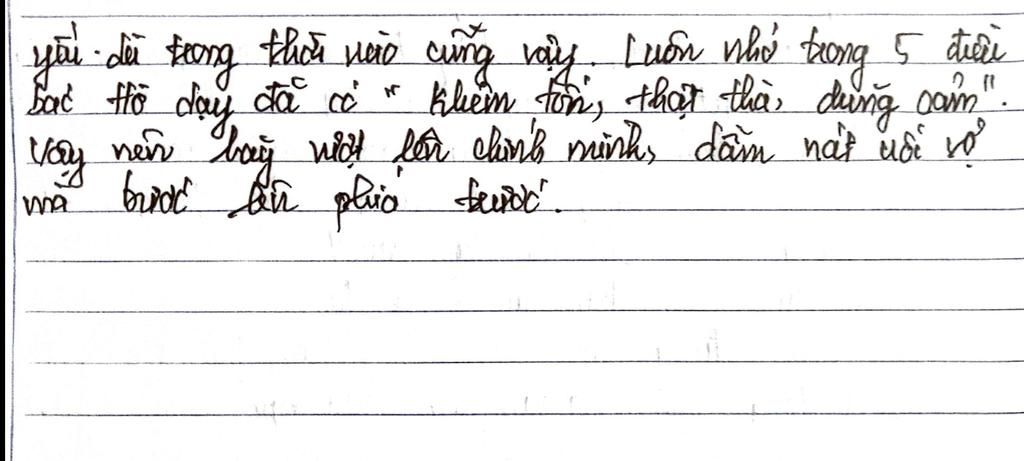 yếu. dù trong thời nào cũng vậy. Luôn nhớ trong 5 điều
bác Hồ dạy đã có " Khiêm tốn, thật thà, dũng cảm".
Vậy nên hãy vượt lên chính mình, dẫm nát nỗi sợ
mà bước lên phía trước.